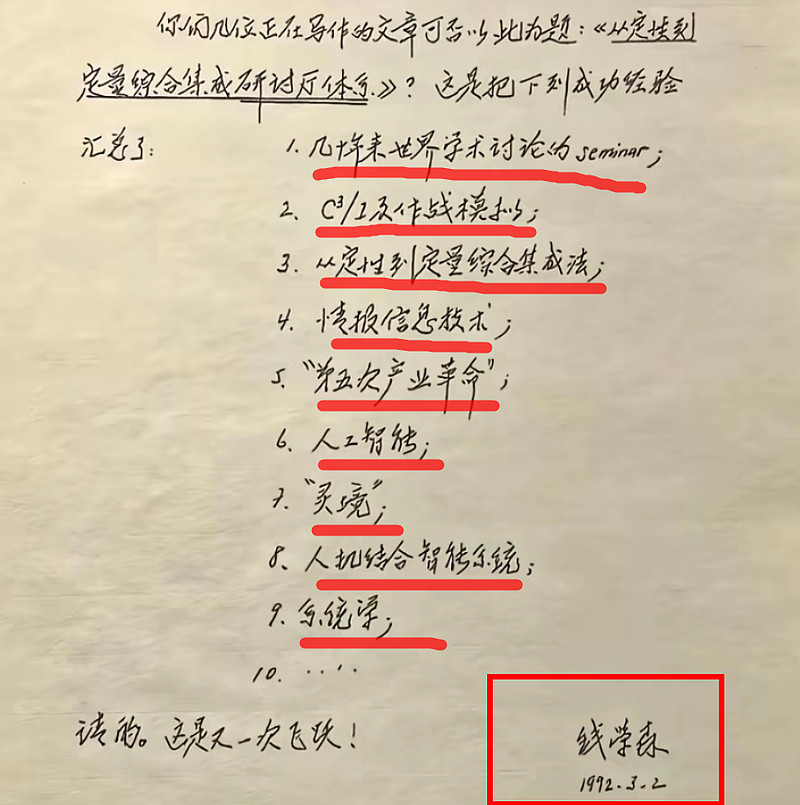 你们几位正在写作的文章可否以此为题：《从定性到
定量综合集成研讨厅体系》？这是把下列成功经验
汇总了：1. 几十年来世界学术讨论的seminar；
2. C³/I及作战模拟；
3. 从定性到定量综合集成法；
4. 情报信息技术；
5. “第五次产业革命”；
6. 人工智能；
7. “灵境”；
8. 人机结合智能系统；
9. 系统学；
10. ……
请酌。这是又一次飞跃！
钱学森
1992.3.2